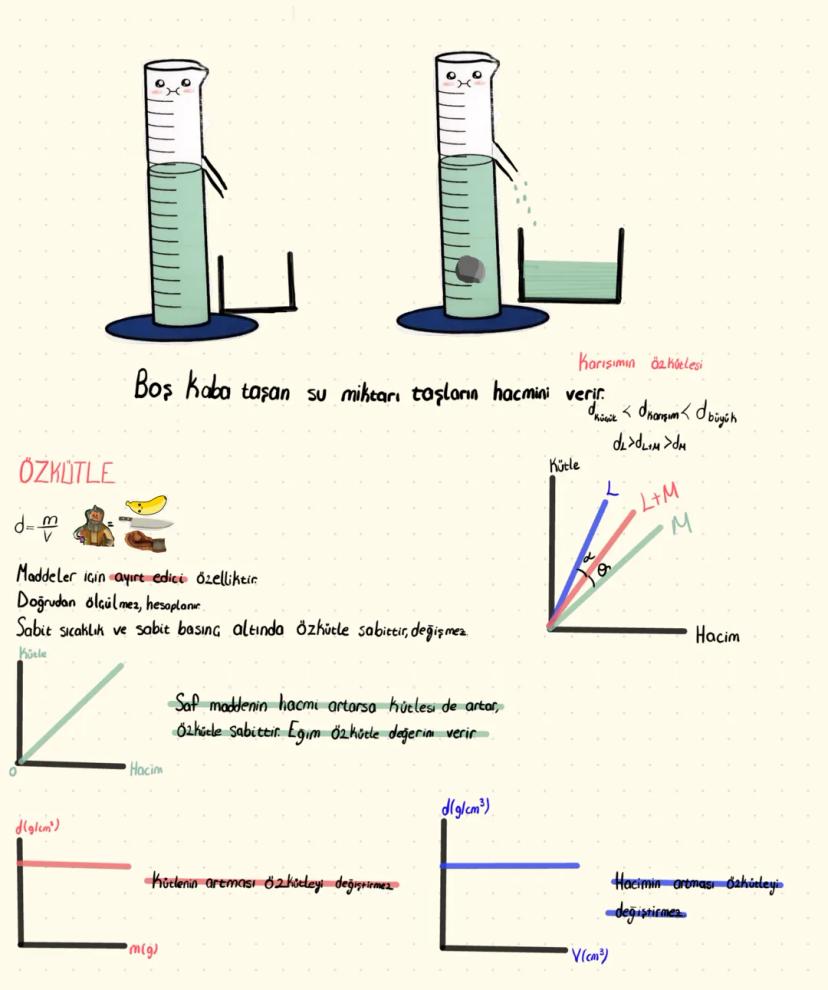 Boş kaba taşan su miktarı taşların hacmini verir.
Karışımın özkütlesi
dküçük < dkarışım < dbüyük
dL>dL+M>dM
ÖZKÜTLE
d=m/v =
Maddeler için ayırt edici özelliktir.
Doğrudan ölçülmez, hesaplanır.
Sabit sıcaklık ve sabit basınç altında özkütle sabittir, değişmez.
Kütle
L
L+M
M
α
θ
Hacim
Kütle
0
Hacim
Saf maddenin hacmi artarsa kütlesi de artar,
özkütle sabittir. Eğim özkütle değerini verir
d(g/cm³)
m(g)
Kütlenin artması özkütleyi değiştirmez
d(g/cm³)
V(cm³)
Hacimin artması özkütleyi
değiştirmez